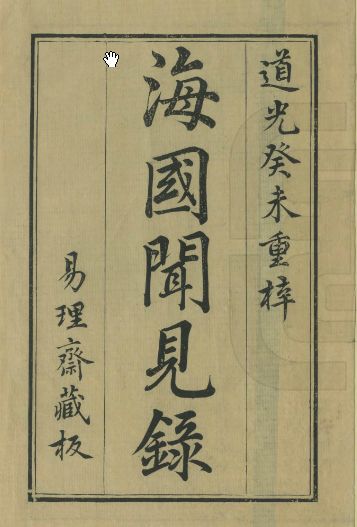 道光癸未重梓
海國聞見錄
易理齋藏板